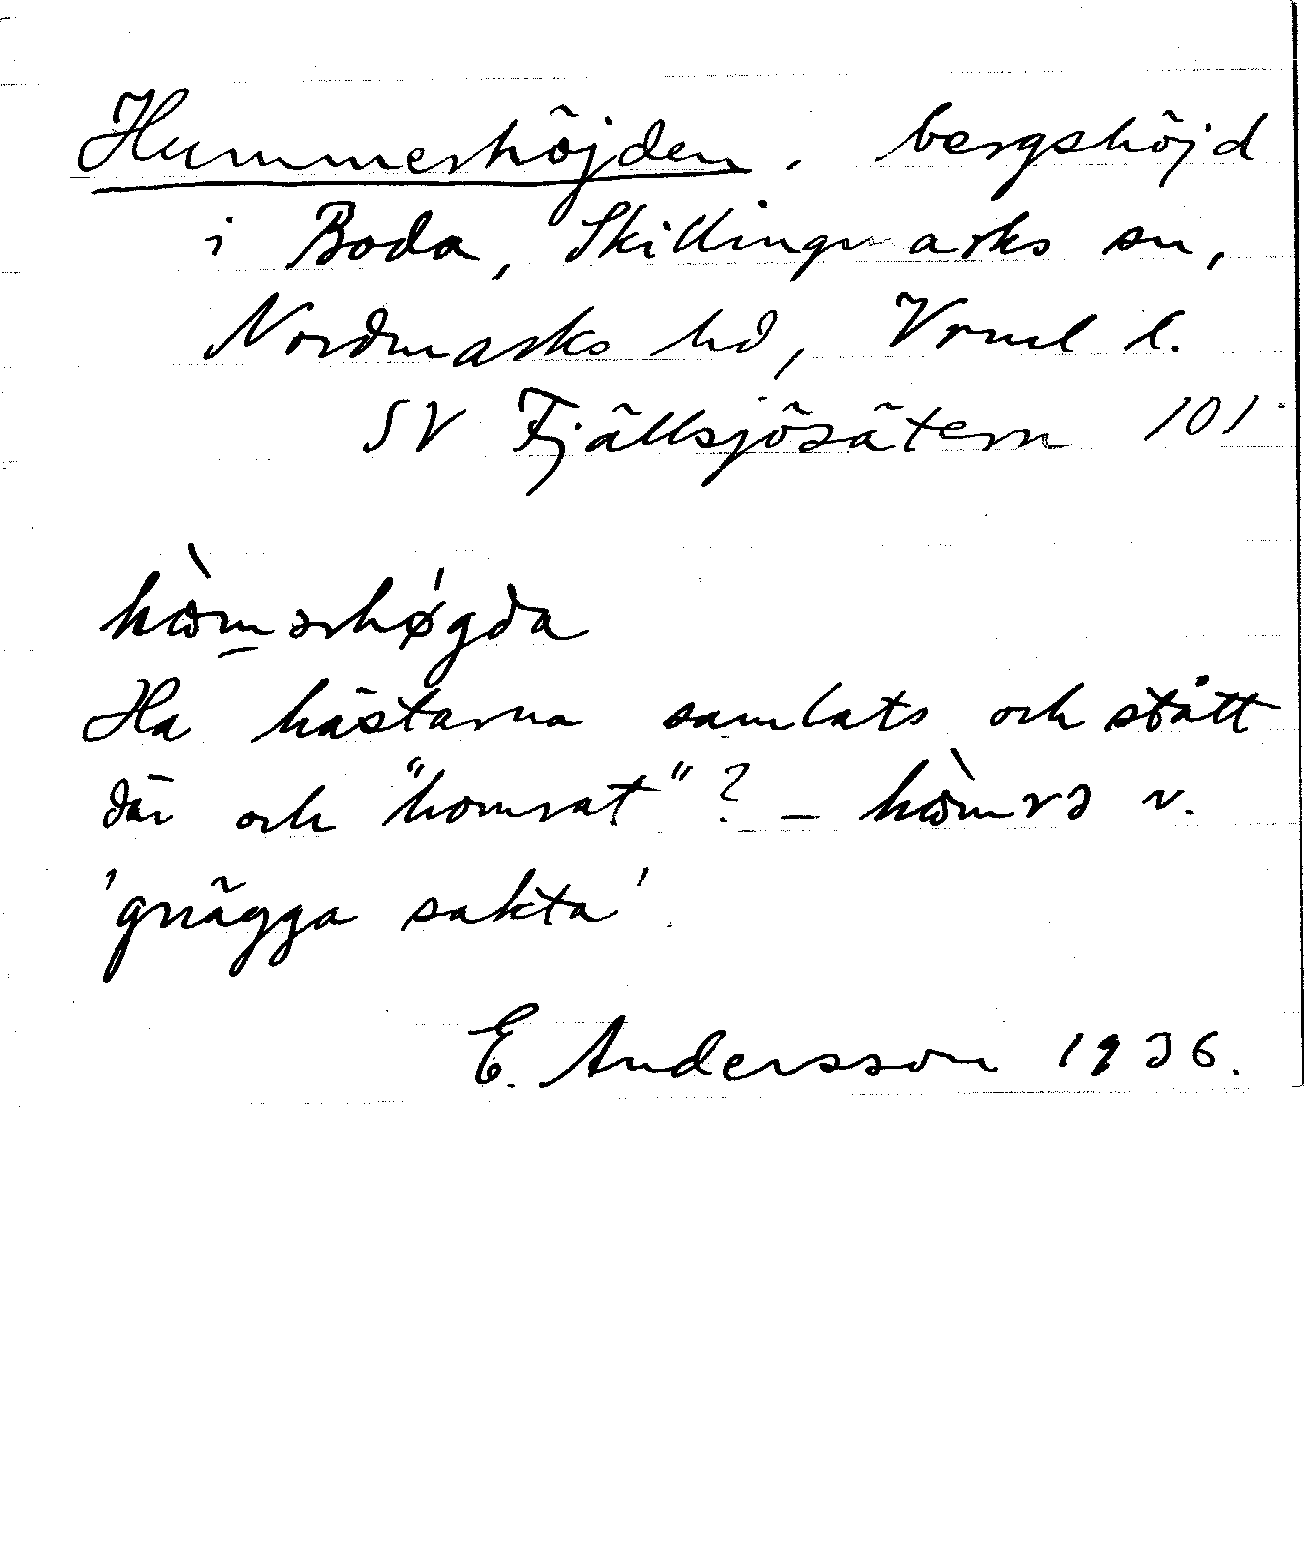 Hummerhöjden, bergshöjd
i Boda, Skillingmarks sn,
Nordmarks hd, Vrml l.
SV Fjällsjösätern 101
hòmərhǿgda
Ha hästarna samlats och stått
där och "homrat"? – hòmrə v.
'gnägga sakta'.
E. Andersson 1936.